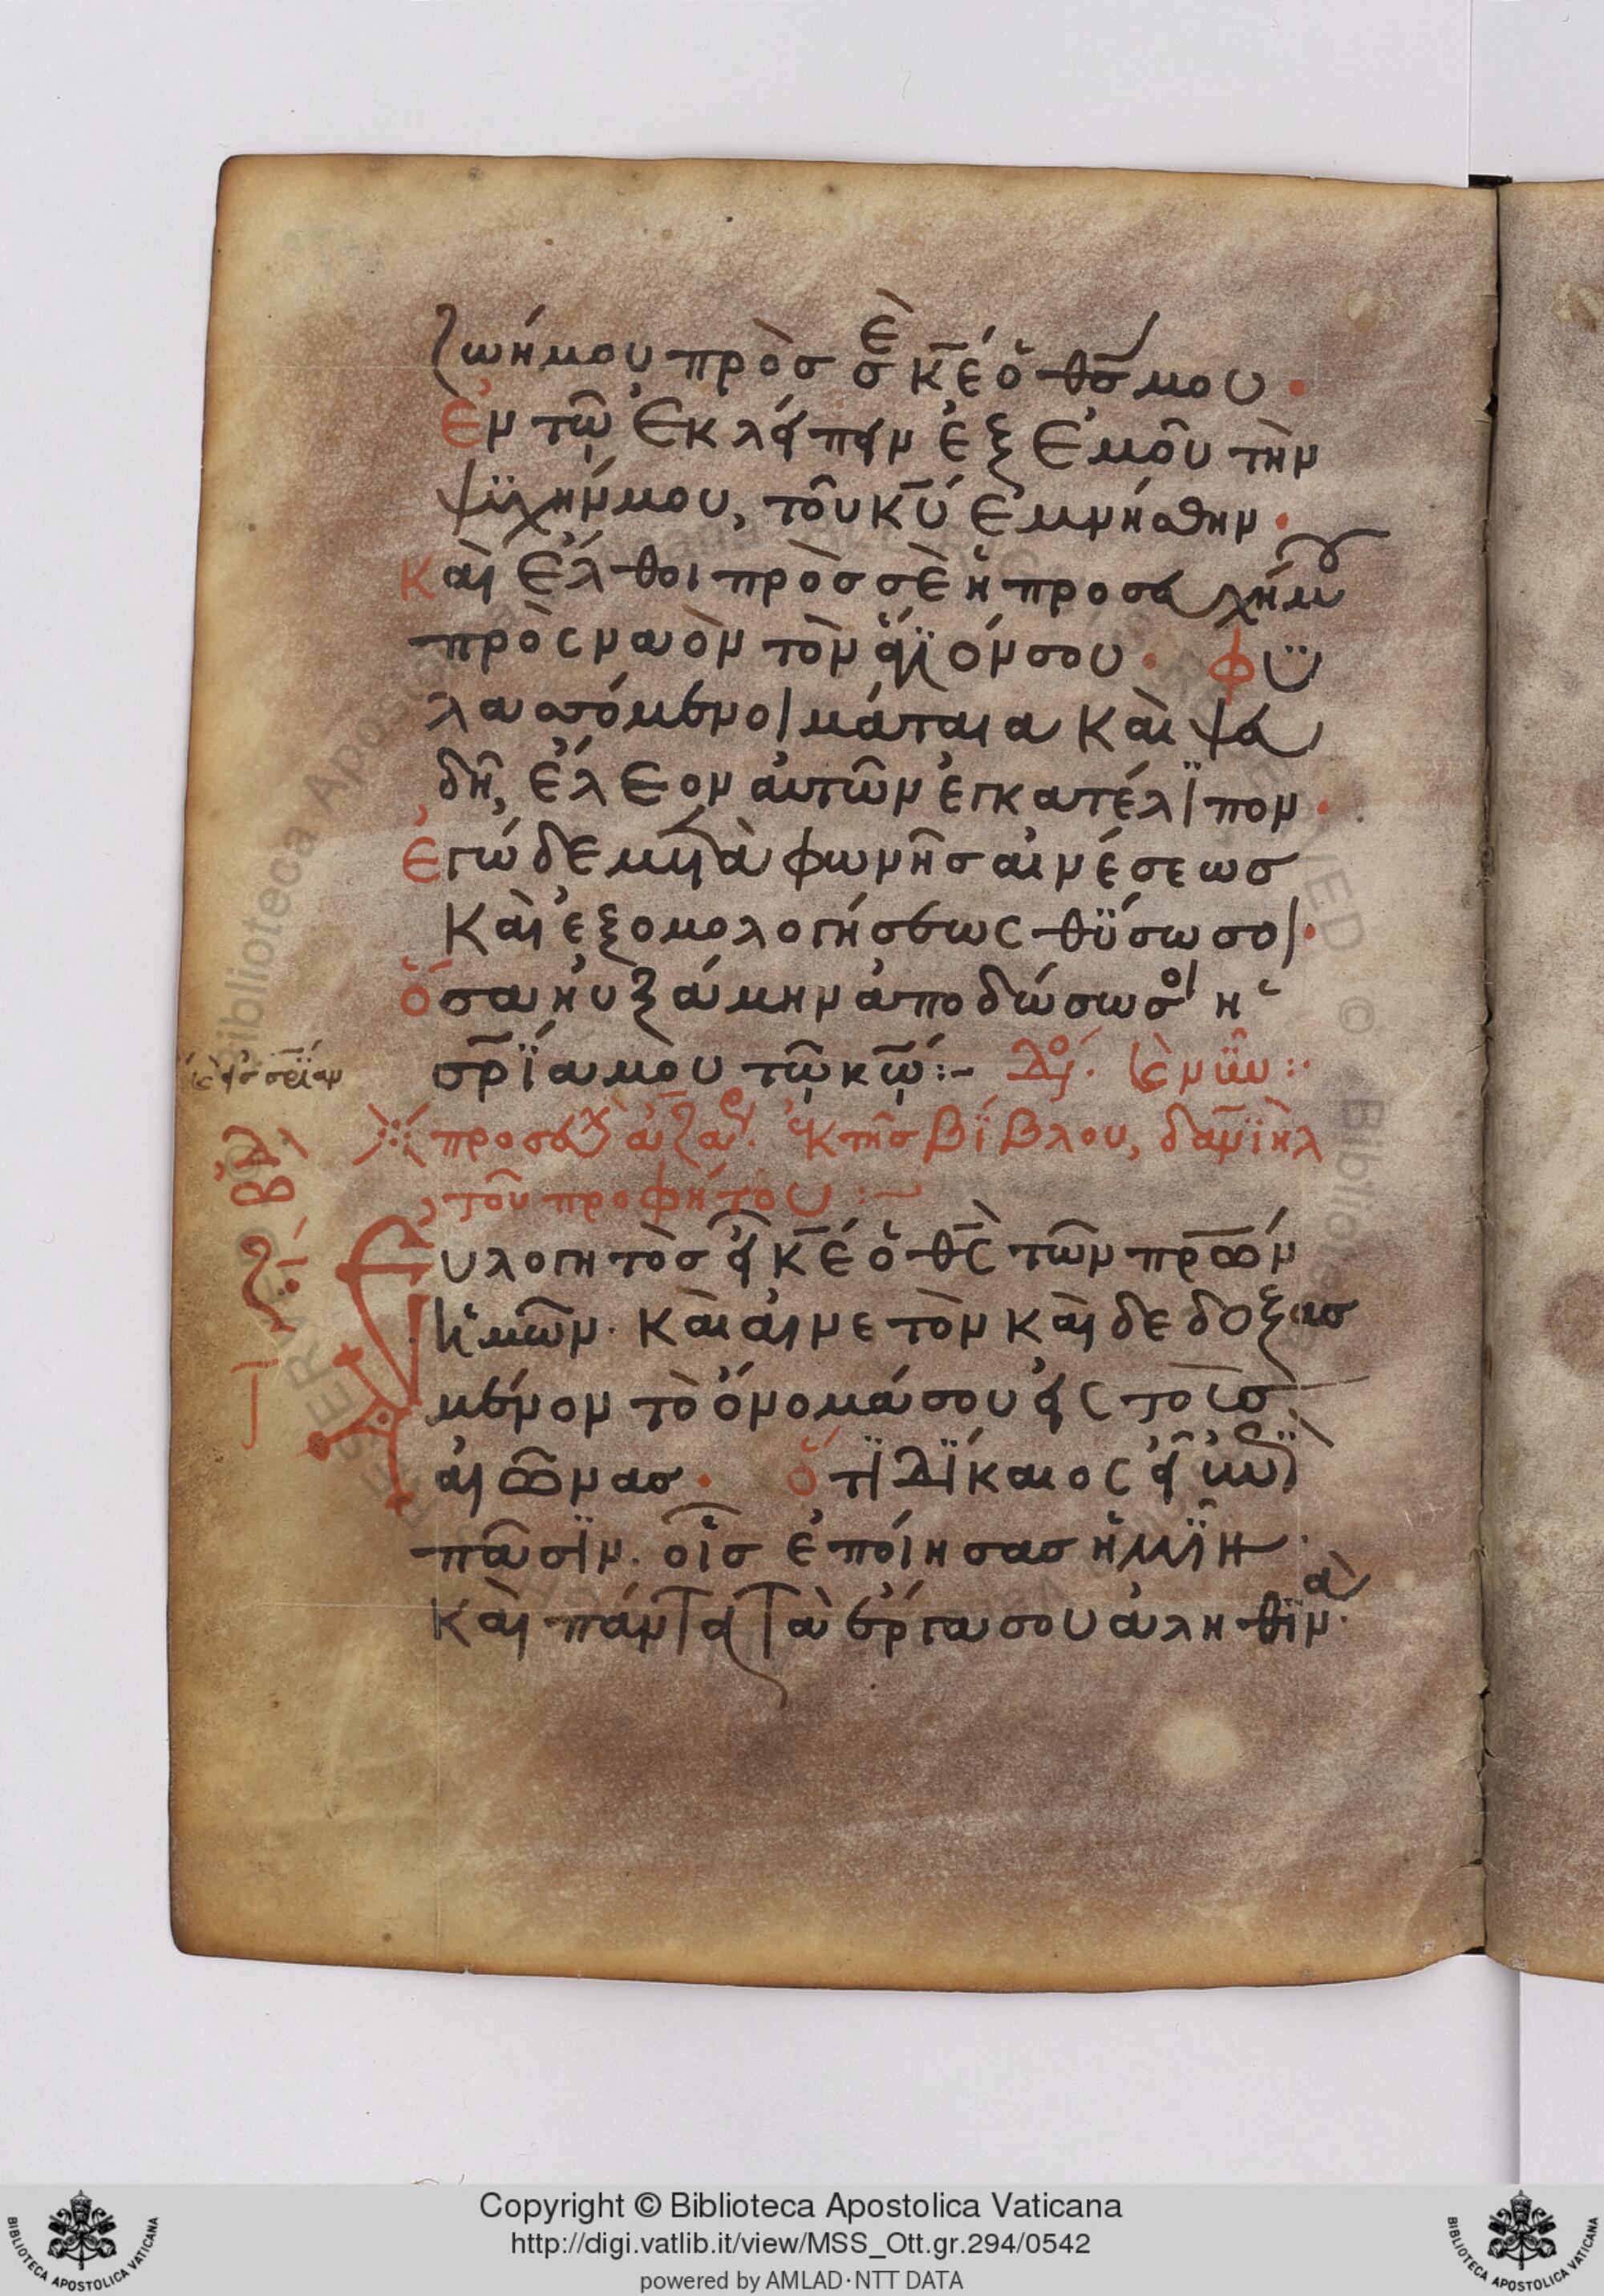 ζωή μου πρὸς σὲ κ̅ε̅ ὁ θ̅ς̅ μου.
Ἐν τῷ ἐκλείπειν ἐξ ἐμοῦ τὴν
ψϋχήν μου, τοῦ κ̅υ̅ ἐμνήσθην.
καὶ ἔλθοι πρὸς σὲ ἡ προσευχήμου
πρὸς ναὸν τὸν ἅγϊόν σου. φυ
λασσόμενοι μάταια καὶ ψευ
δῆ, ἔλεον ἀυτῶν ἐγκατέλϊπον.
ἐγώ δε μετὰ φωνῆς αἰνέσεως
καὶ ἐξομολογήσεως θύσω σοι.
ὅσα ηὐξάμην ἀποδώσω σοι
σ̅ρ̅ϊα μου τῷ κ̅ῳ̅:-
προσευχὴ ἐκ τῆς βϊβλου, δανϊὴλ
τοῦ προφήτου :~
Εὐλογητὸς εἶ κ̅ε̅ ὁ θ̅ς̅ τῶν π̅ρ̅ων
ἡμῶν. καὶ αἰνετὸν καὶ δεδοξασ
μένον τὸ ὄνομά σου εἰς τοὺς
αἰῶνας. ὅτϊ δϊκαιος εἶ ἐπὶ
πᾶσϊν. οἷς ἐποίησας ἡμῖν
καὶ πάντα τὰ ἔργα σου ἀληθϊνὰ.
Copyright © Biblioteca Apostolica Vaticana
http://digi.vatlib.it/view/MSS_Ott.gr.294/0542
powered by AMLAD·NTT DATA